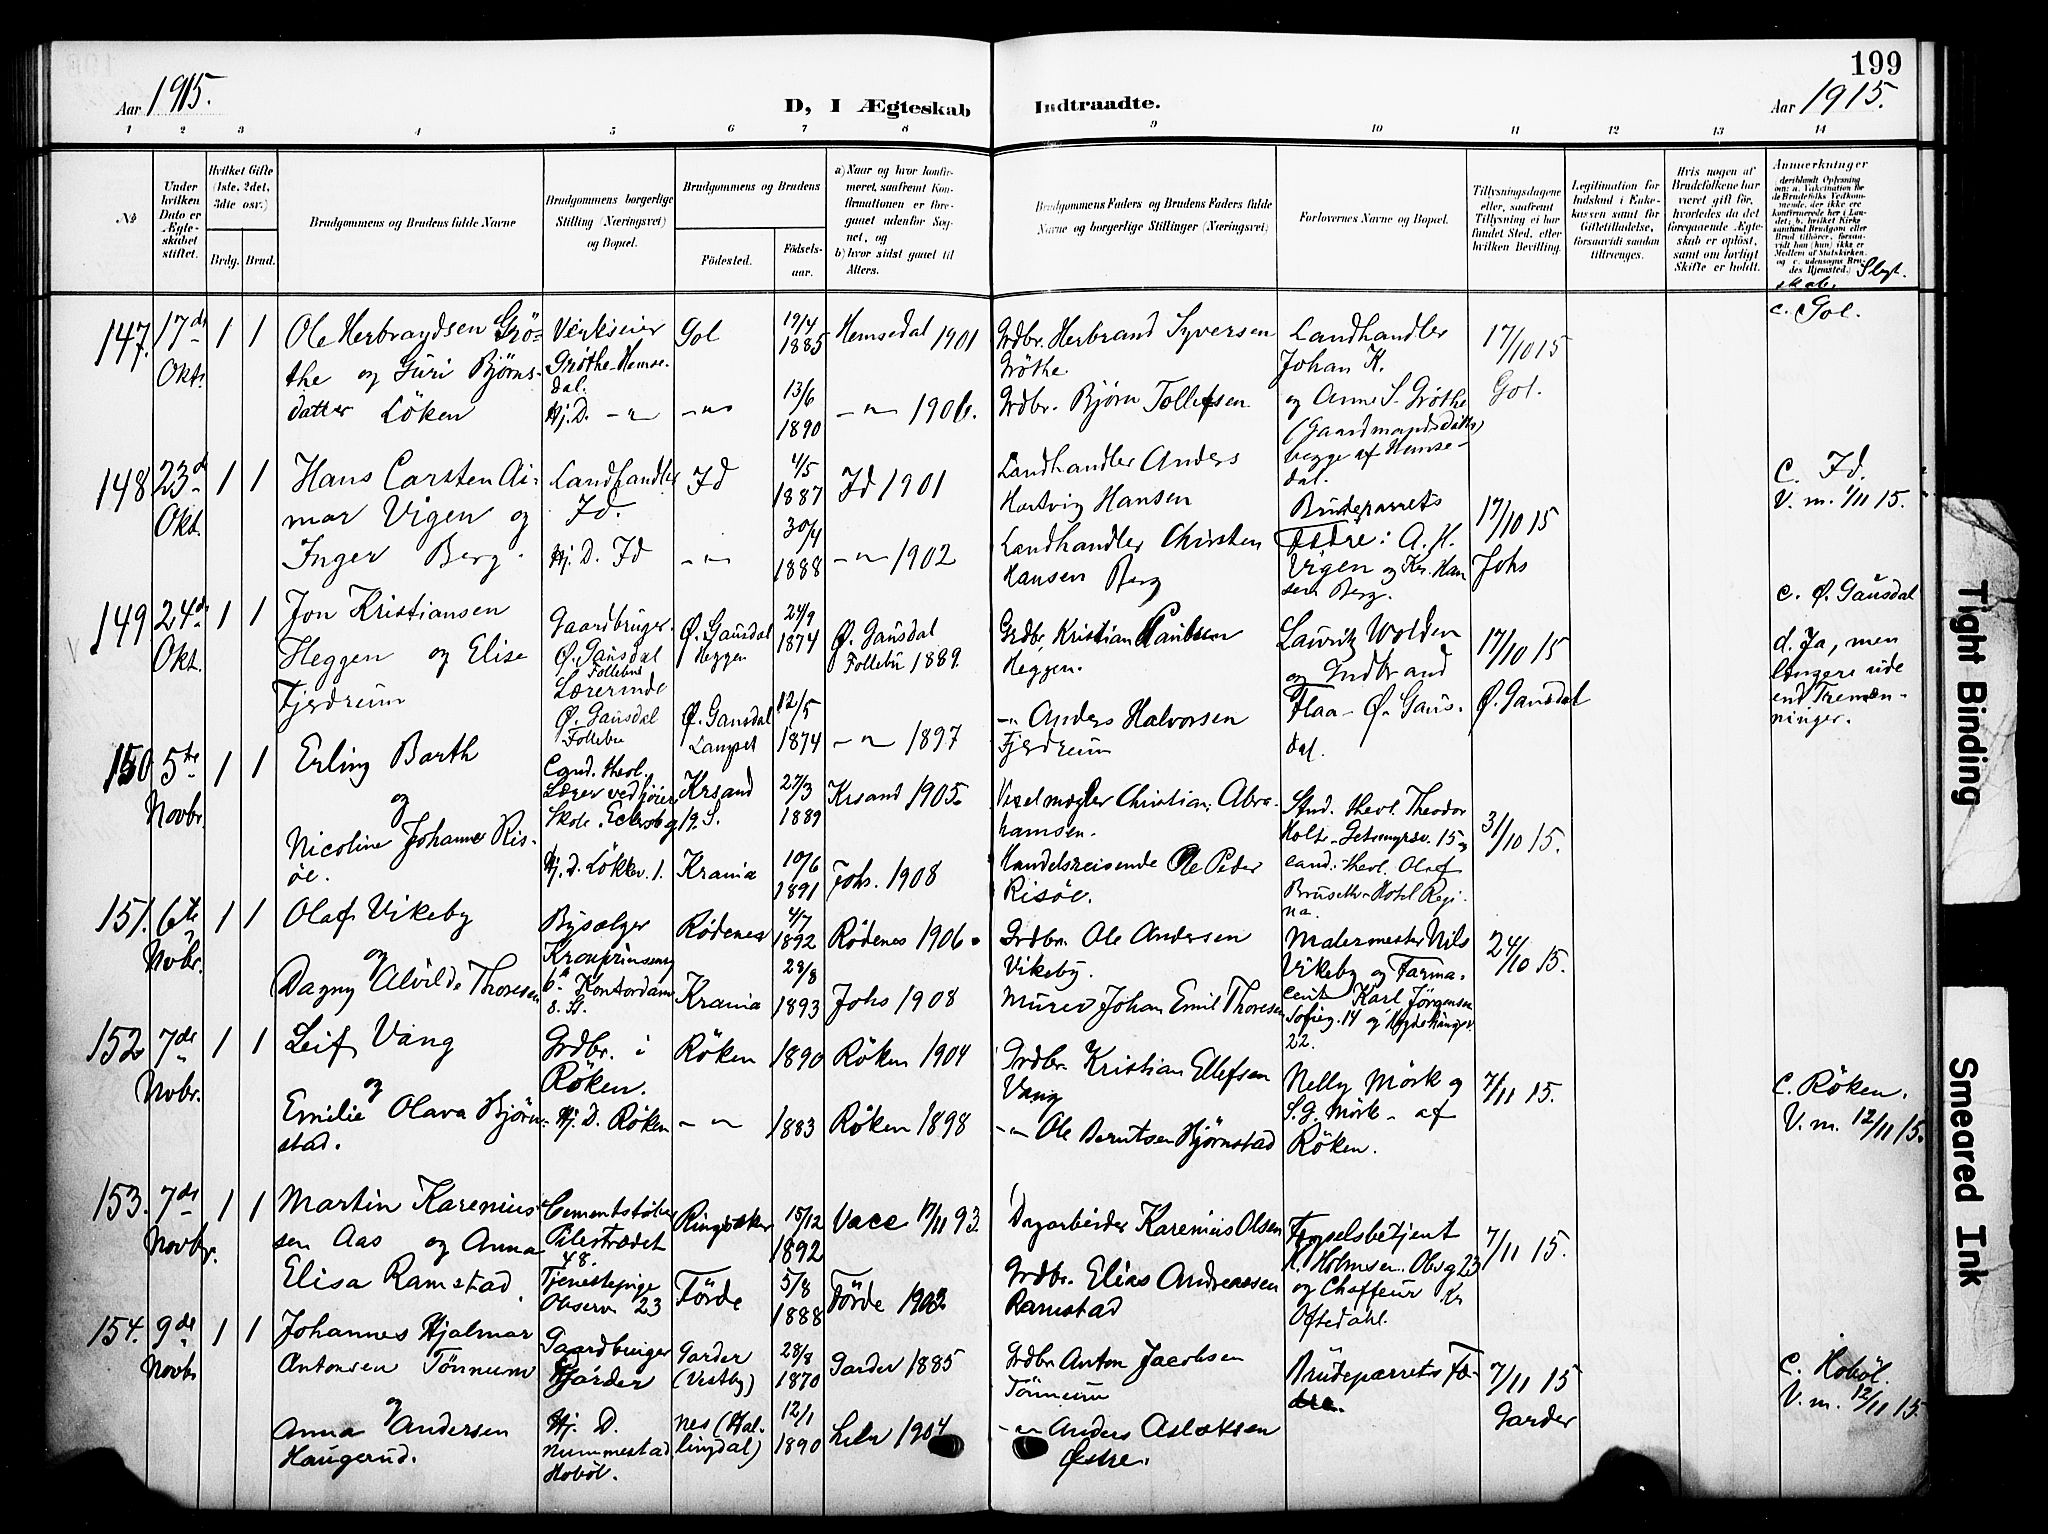 199
Aar 1915.
D, I Ægteskab Indtraadte.
Aar 1915.
1 2 3 4 5 6 7 8 9 10 11 12 13 14
No
Under hvilken Dato er Ægteskabet stiftet.
Hvilket Gifte (1ste, 2det, 3die osv.)
Brdg. Brud.
Brudgommens og Brudens fulde Navne
Brudgommens borgerlige Stilling (Næringsvei) og Bopæl.
Brudgommens og Brudens
Fødested.
Fødselsaar.
a) Naar og hvor konfirmeret, saafremt Konfirmationen er foregaaet udenfor Sognet, og
b) hvor sidst gaaet til Alters.
Brudgommens Faders og Brudens Faders fulde Navne og borgerlige Stillinger (Næringsvei)
Forlovernes Navne og Bopæl.
Tillysningsdagene eller, saafremt Tillysning ei har fundet Sted, efter hvilken Bevilling.
Legitimation for Indskud i Enkekassen samt for Giftetilladelse, forsaavidt saadan tiltrænges.
Hvis nogen af Brudefolkene har været gift før, hvorledes da det foregaaende Ægteskab er opløst, samt om lovligt Skifte er holdt.
Anmerkninger
deriblandt Oplysning om: a. Vakcination for de Brudefolks Vedkommende, der ikke ere konfirmerede her i Landet; b. hvilket Kirkesamfund Brudgom eller Brud tilhører, forsaavidt han (hun) ikke er Medlem af Statskirken, og c. udensogns Brudes Hjemsted.) Slegtskab.
147. 17de Okt. 1 1
Ole Herbrandsen Grøthe og Guri Bjørnsdatter Löken
Verkseier Grøthe-Hemsedal.
Hj. D. -"-
Gol
-"-
19/4 1885
13/6 1890
Hemsedal 1901
-"- 1906.
Grdbr. Herbrand Syversen Grøthe
Grdbr. Bjørn Tollefsen
Landhandler Johan K. og Anne S. Grøthe (Gaardmandsdatter) begge af Hemsedal.
17/10 15 Gol.
c. Gol.
148 23de Okt. 1 1
Hans Carsten Aimar Vigen og Inger Berg.
Landhandler Id.
Hj. D. Id
Id
-"-
4/5 1887
30/4 1888
Id 1901
-"- 1902
Landhandler Anders Hartvig Hansen
Landhandler Christen Hansen Berg
Brudeparrets Fædre: A. H. Vigen og Kr. Hansen Berg.
17/10 15 Johs
C. Id.
V. m. 1/11 15.
149 24de Okt. 1 1
Jon Kristiansen Heggen og Elise Fjerdrum
Gaardbruger. Ø. Gausdal Follebu
Lærerinde Ø. Gausdal Follebu
Ø. Gausdal Heggen
Ø. Gausdal
24/9 1874
12/5 1874
Ø. Gausdal Follebu 1889.
-"- 1897
Grdbr. Kristian Paulsen Heggen.
-"- Anders Halvorsen Fjerdrum
Lauritz Wolden og Gudbrand Flaa - Ø. Gausdal.
17/10 15 Ø. Gausdal
c. Ø. Gausdal
d. Ja, men længere ude end Tremænninger.
150 5te Novbr. 1 1
Erling Barth
og
Nicoline Johanne Risöe.
Cand. theol. Lærer ved høiere Skole.
Hj. D. Lökkev. 1.
Krsand S.
Krania
27/3 1889
10/6 1891
Krsand 1905.
Johs. 1908
Vexelmægler Christian Abrahamsen.
Handelsreisende Ole Peder Risöe.
Stud. theol. Theodor Holt - Getemyrsv. 15 og cand. theol. Olaf Bruseth - Hotel Regina.
31/10 15.
151. 6te Novbr. 1 1
Olaf Vikeby
og
Dagny Alvilde Thoresen
Bysælger Kronprinsensg 6a
Kontordame s. St.
Rødenes
Krania
4/7 1892
28/8 1893
Rödenes 1906.
Johs 1908
Grdbr. Ole Andersen Vikeby.
Murer Johan Emil Thoresen
Malermester Nils Vikeby og Farmaceut Karl Jörgensen Sofieg. 14 og
22.
24/10 15.
152 7de Novbr. 1 1
Leif Vang
og
Emilie Olava Hjörnstad.
Grdbr. i Röken.
Hj. D. Röken
Röken
-"-
1890
1883
Röken 1904
Röken 1898
Grdbr. Kristian Ellefsen Vang
-"- Ole Berntsen Hjörnstad
Nelly Mörk og S. G. Mörk - af Röken.
7/11 15.
C. Röken.
V. m. 12/11 15.
153. 7de Novbr. 1 1
Martin Kareniussen Aas og Anna Elisa Ramstad.
Cementstøber Pilestrædet 48.
Tjenestepige Observ. 23
Ringsaker
Förde
15/12 1892
5/8 1888
17/11 93.
Förde 1903.
Dagarbeider Karenius Olsen
Grdbr. Elias Andreassen Ramstad
Fængselsbetjent H. Holmsen. Obsg 23 og Chaffeur Kr Oftedahl.
7/11 15.
154. 9de Novbr. 1 1
Johannes Hjalmar Antonsen Tönnum
og
Anna Andersen Haugerud.
Gaardbruger Gjärder
Hj. D. Nummestad Hobøl.
Garder (Vestby)
Nes (Hallingdal)
28/8 1870
12/1 1890
Garder 1885
1904
Grdbr. Anton Jacobsen Tönnum
-"- Anders Aslaksen Østre.
Brudeparrets Fædre.
7/11 15 Garder
C. Hobøl.
V. m. 12/11 15.
Tight Binding
Smeared Ink